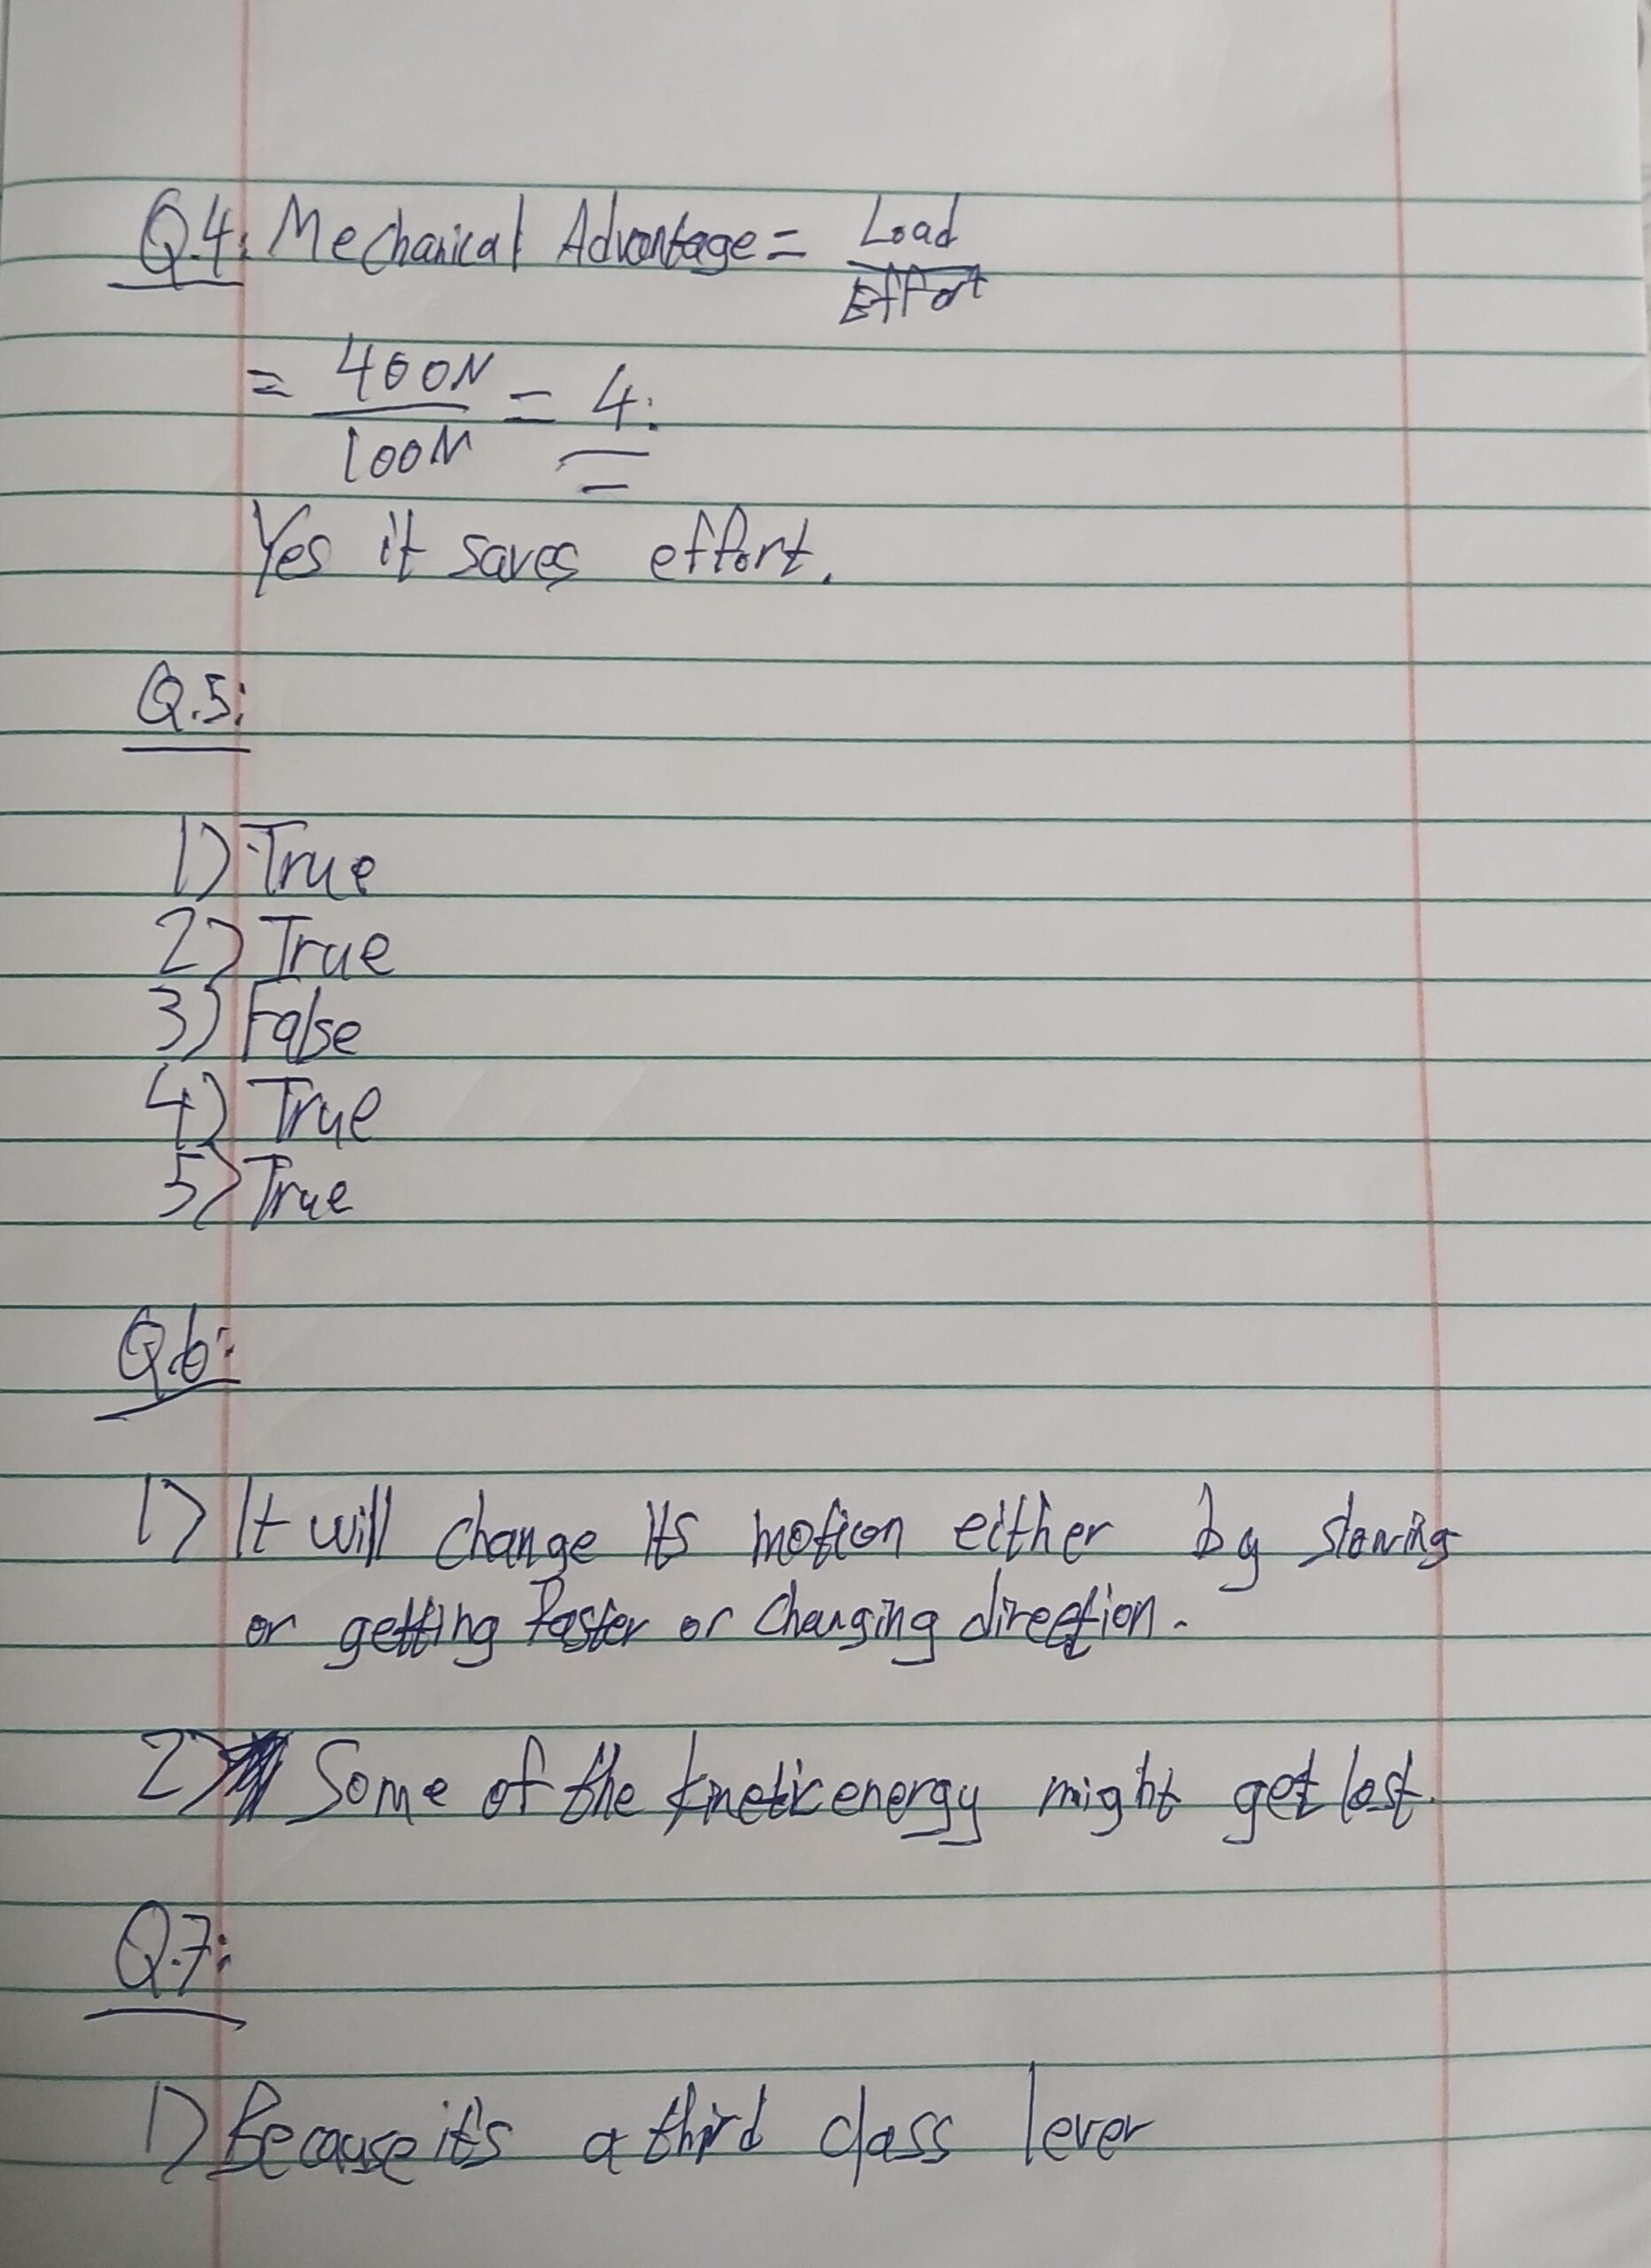 Q.4: Mechanical Advantage = Load
Effort
= 400N = 4.
100N
Yes it saves effort.
Q.5:
1) True
2) True
3) False
4) True
5) True
Q.6:
1) It will change its motion either by slowing
or getting faster or changing direction.
2) Some of the kinetic energy might get lost.
Q.7:
1) Because it's a third class lever